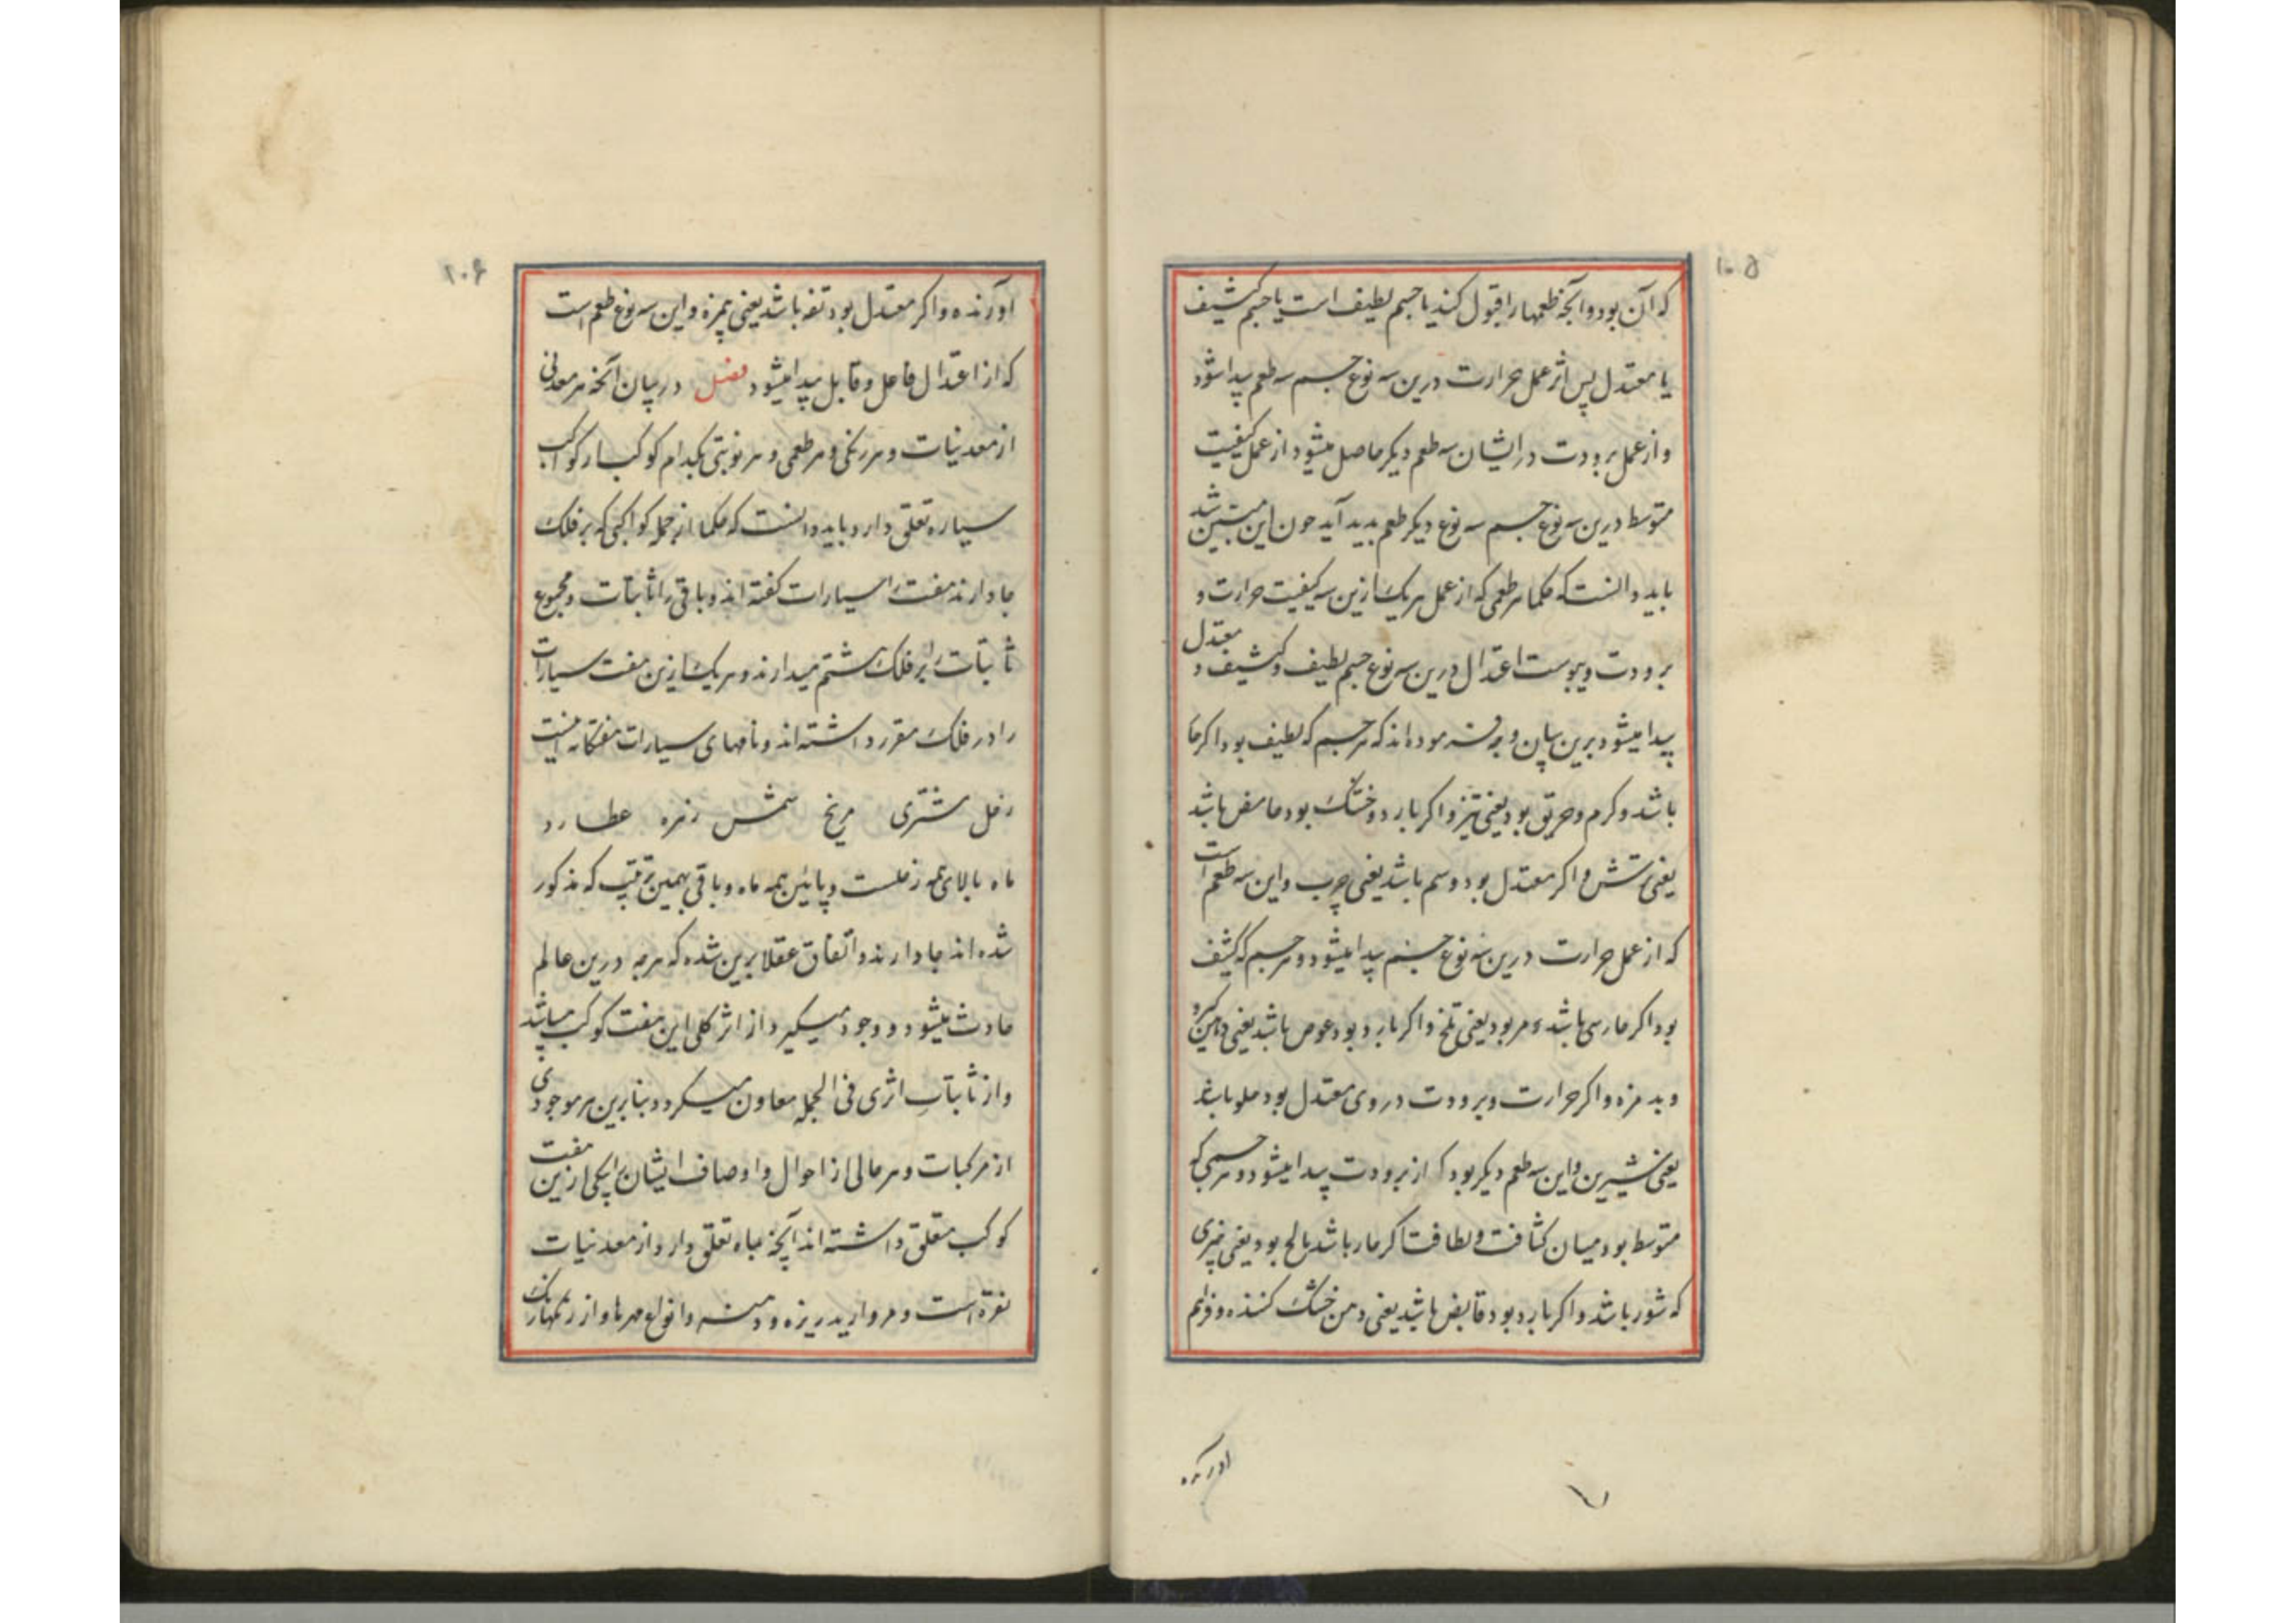 ۱۰۵
که آن بود و آنچه طعمها را قبول کند یا جسم لطیف است یا جسم کثیف
یا معتدل پس اثر عمل حرارت درین سه نوع جسم سه طعم پیدا شود
و از عمل برودت در ایشان سه طعم دیگر حاصل میشود از عمل کیفیت
متوسط درین سه نوع جسم سه نوع دیگر طعم بدید آید چون این مبین شد
باید دانست که حکما هر طعمی که از عمل هر یک ازین سه کیفیت حرارت و
برودت و یبوست اعتدال درین سه نوع جسم لطیف و کثیف و معتدل
پیدا میشود برین بیان وجه فرموده اند که هر جسم که لطیف بود اگر حا
باشد و گرم و حریق بود یعنی تیز و اگر بارد و خشک بود حامض باشد
یعنی ترش و اگر معتدل بود دسم باشد یعنی چرب و این سه طعم است
که از عمل حرارت درین سه نوع جسم پیدا میشود و هر جسم که کثیف
بود اگر حارسی باشد و مر بود یعنی تلخ و اگر بارد بود عوص باشد یعنی دهن گیر
و بد مزه و اگر حرارت و برودت در وی معتدل بود حلو باشد
یعنی شیرین و این سه طعم دیگر بود که از برودت پیدا میشود و هر جسمی که
متوسط بود میان کثافت و لطافت اگر حار باشد مالح بود یعنی چیزی
که شور باشد و اگر بارد بود قابض باشد یعنی دهن خشک کننده و فراهم
اورنده
۷
۱۰۶
آورنده و اگر معتدل بود تفه باشد یعنی بیمزه و این سه نوع طعم است
که از اعتدال فاعل و قابل پیدا میشود فصل در بیان آنکه هر معدنی
از معدنیات و هر رنگی و هر طعمی و هر نوبتی بکدام کوکب از کواکب
سیاره تعلق دارد باید دانست که حکما از جمله کواکبی که بر فلک
جا دارند هفت را سیارات گفته اند و باقی را ثابتات و مجموع
ثابتات را بر فلک هشتم میدارند و هر یک ازین هفت سیارات
را در فلک مقرر داشته اند و نامهای سیارات هفتگانه اینست
زحل مشتری مریخ شمس زهره عطارد
ماه بالای همه زحلست و پائین همه ماه و باقی بهمین ترتیب که مذکور
شده اند جا دارند و اتفاق عقلا برین شده که هرچه درین عالم
حادث میشود و وجود میگیرد از اثر کلی این هفت کوکب میباشد
و از ثابتات اثری فی الجمله معاون میگردد بنا برین هر موجودی
از مرکبات و هر حالی از احوال و اوصاف ایشان را بیکی ازین هفت
کوکب متعلق داشته اند آنچه بماه تعلق دارد از معدنیات
نقره است و مروارید ریزه و دهنه و انواع مهرها و از رنگها رنگ